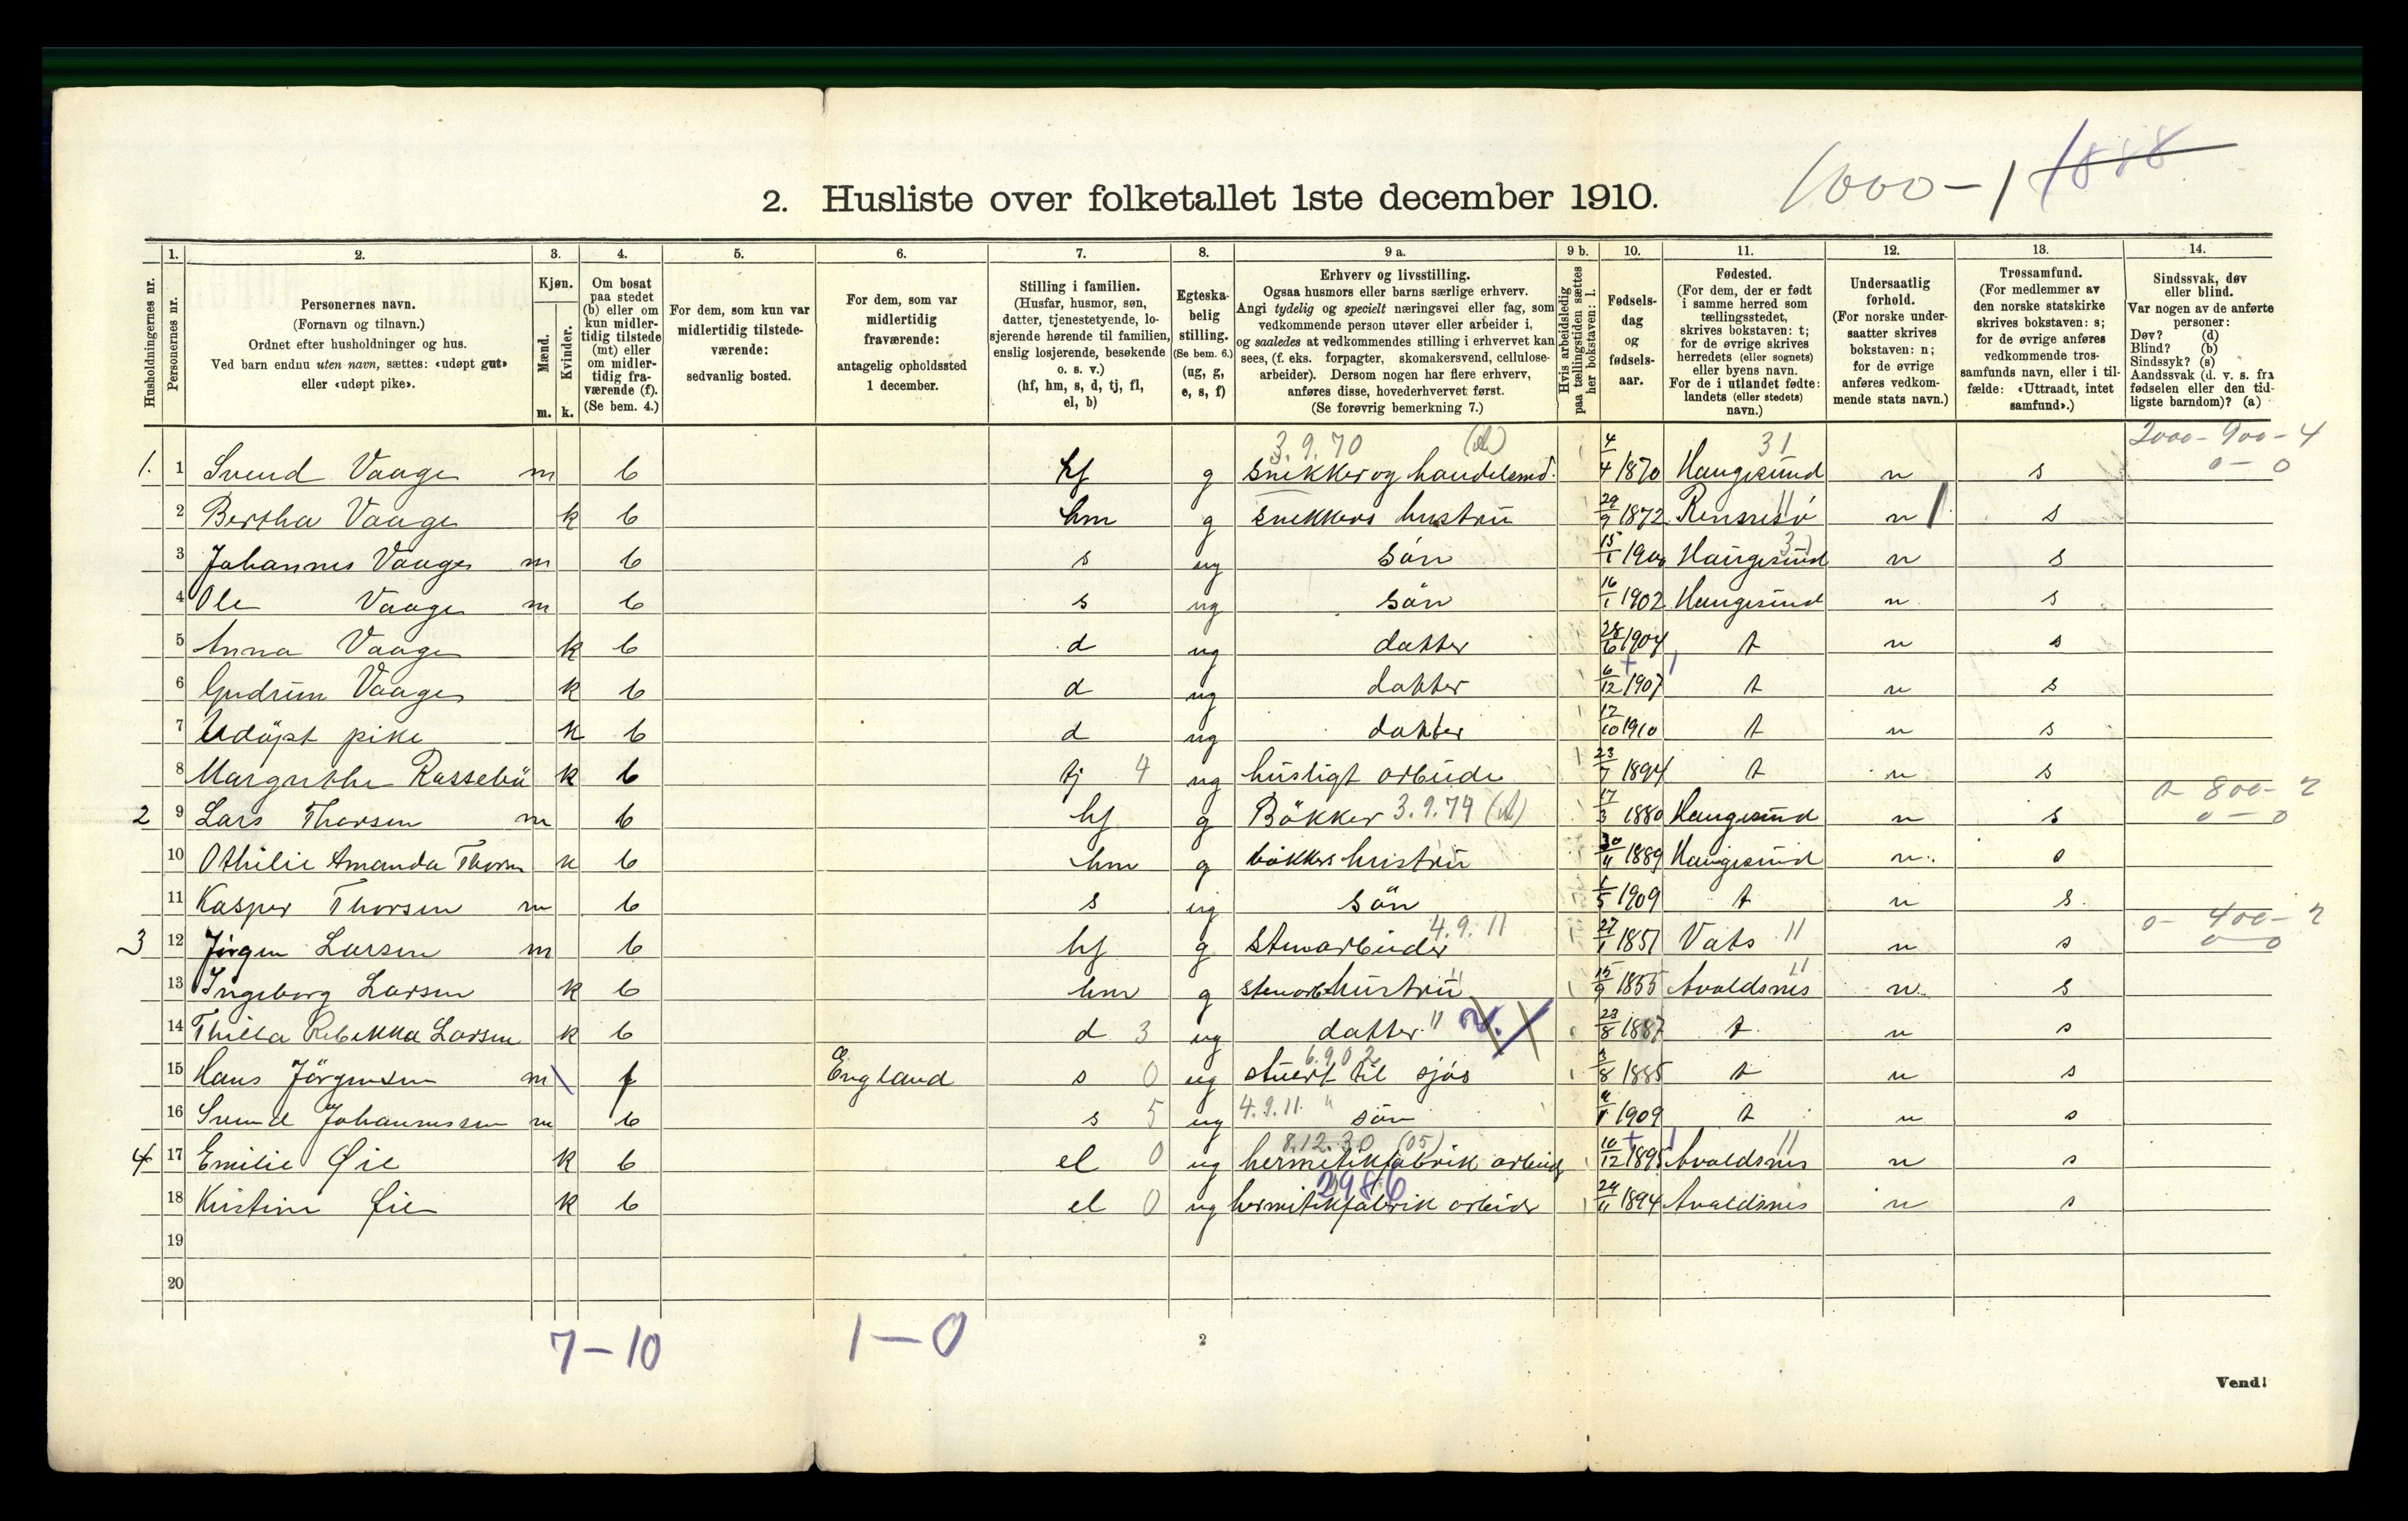 1000-1 1888
2. Husliste over folketallet 1ste december 1910.
1. 2. 3. 4. 5. 6. 7. 8. 9 a. 9 b. 10. 11. 12. 13. 14.
Husholdningernes nr.
Personernes nr.
Personernes navn.
(Fornavn og tilnavn.)
Ordnet efter husholdninger og hus.
Ved barn endnu uten navn, sættes: «udøpt gut»
eller «udøpt pike».
Kjøn.
Mænd.
Kvinder.
m. k.
Om bosat
paa stedet
(b) eller om
kun midler-
tidig tilstede
(mt) eller
om midler-
tidig fra-
værende (f).
(Se bem. 4.)
For dem, som kun var
midlertidig tilstede-
værende:
sedvanlig bosted.
For dem, som var
midlertidig
fraværende:
antagelig opholdssted
1 december.
Stilling i familien.
(Husfar, husmor, søn,
datter, tjenestetyende, lo-
sjerende hørende til familien,
enslig losjerende, besøkende
o. s. v.)
(hf, hm, s, d, tj, fl,
el, b)
Egteska-
belig
stilling.
(Se bem. 6.)
(ug, g,
e, s, f)
Erhverv og livsstilling.
Ogsaa husmors eller barns særlige erhverv.
Angi tydelig og specielt næringsvei eller fag, som
vedkommende person utøver eller arbeider i,
og saaledes at vedkommendes stilling i erhvervet kan
sees, (f. eks. forpagter, skomakersvend, cellulose-
arbeider). Dersom nogen har flere erhverv,
anføres disse, hovederhvervet først.
(Se forøvrig bemerkning 7.)
Hvis arbeidsledig
paa tællingstiden sættes
her bokstaven: l.
Fødsels-
dag
og
fødsels-
aar.
Fødested.
(For dem, der er født
i samme herred som
tællingsstedet,
skrives bokstaven: t;
for de øvrige skrives
herredets (eller sognets)
eller byens navn.
For de i utlandet fødte:
landets (eller stedets)
navn.)
Undersaatlig
forhold.
(For norske under-
saatter skrives
bokstaven: n;
for de øvrige
anføres vedkom-
mende stats navn.)
Trossamfund.
(For medlemmer av
den norske statskirke
skrives bokstaven: s;
for de øvrige anføres
vedkommende tros-
samfunds navn, eller i til-
fælde: «Uttraadt, intet
samfund».)
Sindssvak, døv
eller blind.
Var nogen av de anførte
personer:
Døv? (d)
Blind? (b)
Sindssyk? (s)
Aandssvak (d. v. s. fra
fødselen eller den tid-
ligste barndom)? (a)
3.9.70 31 2000-900-4
1. 1 Svend Vaage m b hf g snekker og handelsmd. 4/4 1870 Haugesund n s 0-0
2 Bertha Vaage k b hm g snekkers hustru 29/9 1872 n s
3 Johannes Vaage m b s ug sön 15/1 1900 Haugesund n s
4 Ole Vaage m b s ug sön 16/1 1902 Haugesund n s
5 Anna Vaage k b d ug datter 28/6 1904 t n s
6 Gudrun Vaage k b d ug datter 6/12 1907 t n s
7 Udöpt pike k b d ug datter 17/10 1910 t n s
8 Margrethe Rassebü k b tj 4 ug husligt arbeide 23/7 1894 t n s
0-800-2
2 9 Lars Thorsen m b hf g Bökker 3.9.74 17/3 1880 Haugesund n s 0-0
10 Othilie Amanda Thorsn k b hm g bökkers hustru 30/11 1889 Haugesund n s
11 Kasper Thorsen m b s ug sön 1/5 1909 t n s
4.9.11 0-400-2
3 12 Jörgen Larsen m b hf g Stenarbeider 27/1 1851 Vats 11 n s 0-0
13 Ingeborg Larsen k b hm g stenarb hustru 15/9 1855 Avaldsnes n s
14 Thilla Rebekka Larsen k b d 3 ug datter 23/8 1887 t n s
6.9.0 2
15 Hans Jörgensen m f England s 0 ug stuert til sjøs 3/8 1885 t n s
16 Svend Johannessen m b s 5 ug 4.9.11 sön 1909 t n s
8.12.30 (05)
4 17 Emilie Øie k b el 0 ug hermetikfabrik arbeid 10/12 1895 Avaldsnes n s
2986
18 Kristine Øie k b el 0 ug hermitikfabrik arbeidr 24/11 1894 Avaldsnes n s
19
20
7-10 1-0
2
Vend!